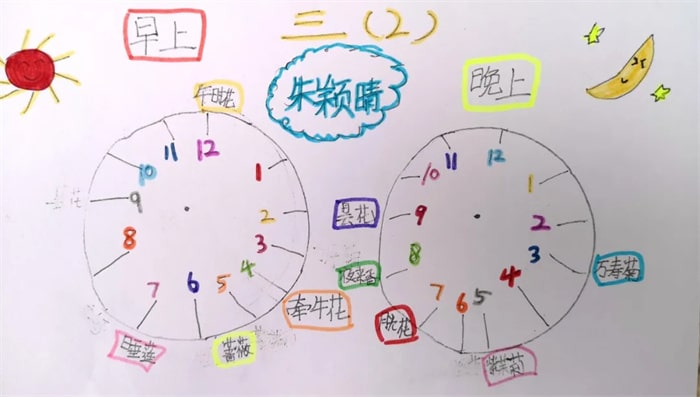 早上
三（2）
晚上
朱颖晴
午时花
12
1
2
3
4
5
6
7
8
9
10
11
牵牛花
蔷薇
睡莲
12
1
2
3
4
5
6
7
8
9
10
11
昙花
夜来香
万寿菊
紫茉莉